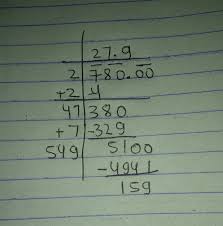 27.9
2 780.00
+2 4
47 380
+7 -329
549 5100
-4941
159